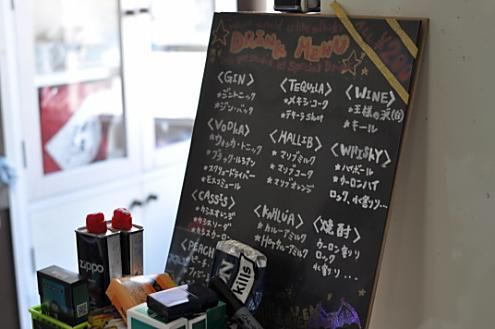 DRINK MENU
<GIN>
*ジントニック
*ジン・バック
<VODKA>
*ウォッカ・トニック
*ブラック・ルシアン
*スクリュードライバー
*モスコミュール
<CASSIS>
*カシスオレンジ
*カシスソーダ
*カシスウーロン
<PEACH
<TEQUILA>
*メキシ・コーク
*テキーラ
<MALLIB>
*マリブミルク
*マリブコーク
*マリブオレンジ
<KAHLUA>
*カルーアミルク
*Hotカルーアミルク
<WINE>
*王様の涙(白)
*キール
<WHISKY>
*ハイボール
*ウーロンハイ
ロック、水割り…
<焼酎>
ウーロン割り
ロック
水割り…
zippo
kills